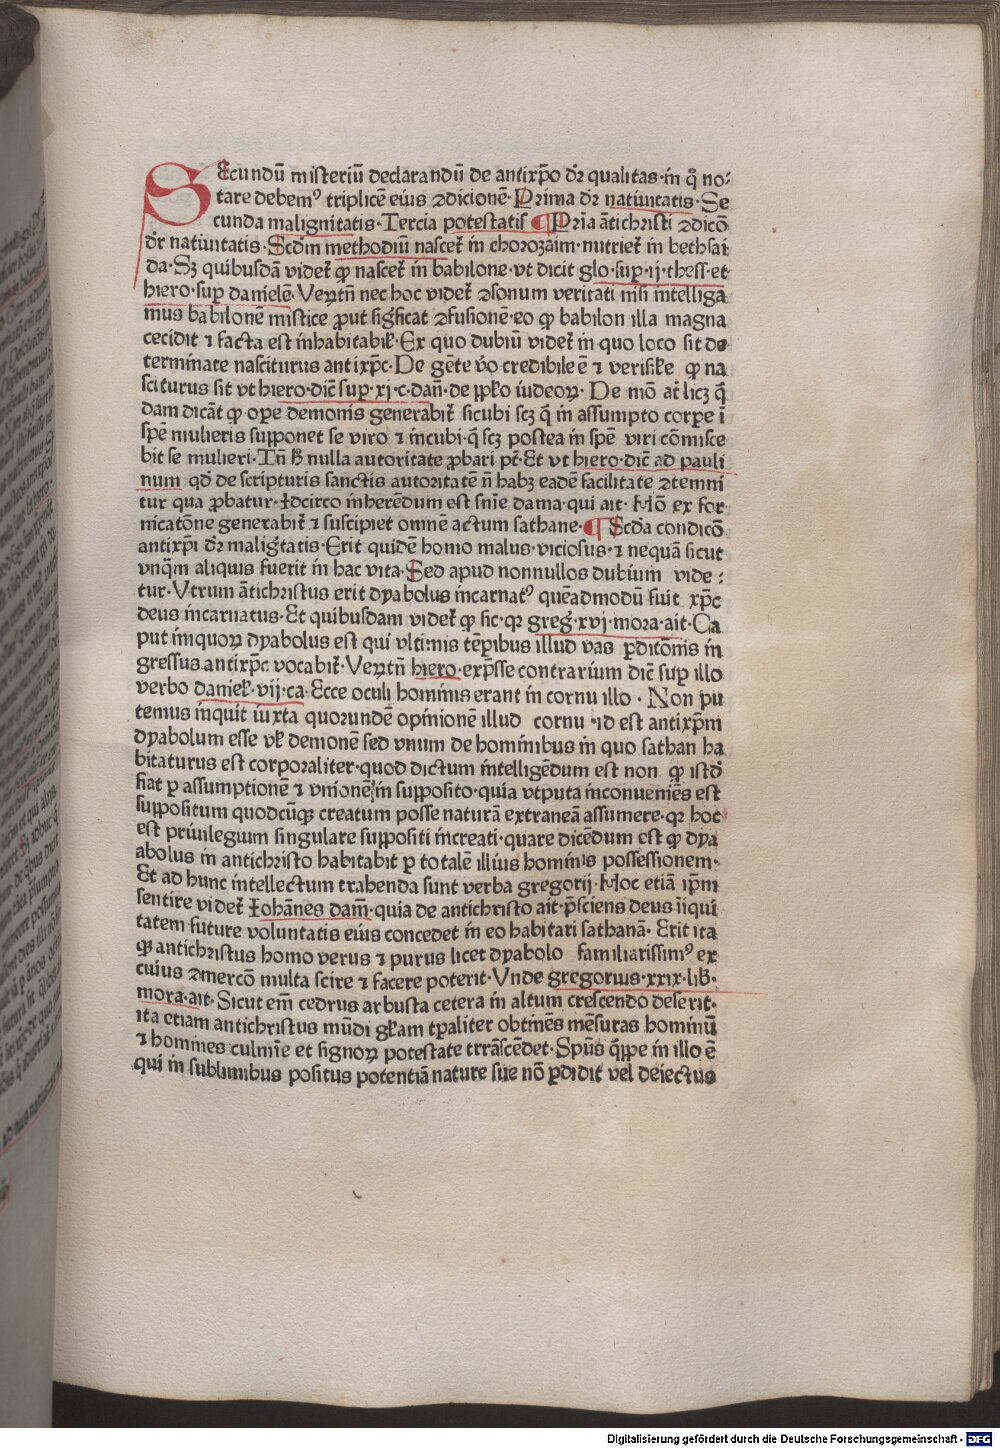 SEcundū misteriū declarandū de antixp̄o dr̄ qualitas·in q̊ no⸗
tare debemꝰ triplicē eius ꝯdicionē·Prima dr̄ natiuitatis·Se
cunda malignitatis·Tercia potestatis ¶Pria āticħristi ꝯdicō
dr̄ natiuitatis·Scd̄m methodiū nascet̄ in chorozaim·nutriet̄ in bethsai
da·Sꝫ quibusdā videt̄ ꝙ nascet̄ in babilone·vt dicit glo·sup̄·ij·thess·et
hiero·sup̄ danielē·Veꝝtn̄ nec hoc videt̄ ꝯsonum veritati nisi intelliga
mus babilonē mistice ꝓut sig̃ficat ꝯfusionē·eo ꝙ babilon illa magna
cecidit ⁊ facta est inhabitabił·Ex quo dubiū videt̄ in quo loco sit de
terminate nasciturus antixp̄c·De gēte v̊o credibile ē ⁊ verisiłe ꝙ na
sciturus sit vt hiero·dic̄ sup̄·xj·c·dan̄·de pp̄ło iudeoꝝ· De mō at̄ licꝫ q̄
dam dicāt ꝙ ope demonis generabit̄ sicubi scꝫ q̄ in assumpto corpe ī
spē mulieris supponet se viro ⁊ incubi·q̄ scꝫ postea in spē viri cōmisce
bit se mulieri·Tn̄ ħ nulla autoritate ꝓbari pt̄·Et vt hiero·dic̄ ad pauli
num qd̄ de scripturis sanctis autoritatē n̄ habꝫ eadē facilitate ꝯtemni
tur qua ꝓbatur·Idcirco inherēdum est sn̄ie dama·qui ait·Mō ex for
nicatōne generabit̄ ⁊ suscipiet omnē actum sathane·¶ Scd̄a condicō
antixp̄i dr̄ malig̃tatis·Erit quidē homo malus·viciosus·⁊ nequā sicut
vnq̄m aliquis fuerit in hac vita·Sed apud nonnullos dubium vide⸗
tur·Vtrum āticħristus erit dyabolus incarnatꝰ quēadmodū fuit xp̄c
deus incarnatus·Et quibusdam videt̄ ꝙ sic·qꝛ greg̃·xvj·mora·ait·Ca
put inquoꝝ dyabolus est qui vltimis tēpibus illud vas ꝑditōnis in
gressus antixp̄c vocabit̄·Veꝝtn̄ hiero·exp̄sse contrarium dic̄ sup̄ illo
verbo danieł·vij·ca·Ecce oculi hominis erant in cornu illo · Non pu
temus inquit iuxta quorundē opinionē illud cornu ·id est antixp̄m
dyabolum esse vł demonē sed vnum de hominibus in quo sathan ha
bitaturus est corporaliter·quod dictum intelligēdum est non ꝙ istd̄
fiat ꝑ assumptionē ⁊ vnionē in supposito·quia vtputa inconueniēs est
suppositum quodcūqꝫ creatum posse naturā extraneā assumere·qꝛ hoc
est priuilegium singulare suppositi increati·quare dicēdum est ꝙ dya
abolus in antichristo habitabit ꝑ totalē illius hominis possessionem·
Et ad hunc intellectum trahenda sunt verba gregorij·Hoc etiā ip̄m
sentire videt̄ Iohānes dam̄·quia de antichristo ait·p̄sciens deus īiqui
tatem future voluntatis eius concedet in eo habitari sathanā· Erit ita
ꝙ antichristus homo verus ⁊ purus licet dyabolo familiarissimꝰ ex
cuius ꝯmercō multa scire ⁊ facere poterit·Vnde gregorius·xxix·lib̄·
mora·ait·Sicut em̄ cedrus arbusta cetera in altum crescendo deserit·
ita etiam antichristus mūdi głam tp̄aliter obtinēs mēsuras hominū
⁊ homines culmīe et signoꝝ potestate trrāscēdet·Spūs q̄ppe in illo ē
qui in sublimibus positus potentiā nature sue nō ꝑdidit vel deiectus
Digitalisierung gefördert durch die Deutsche Forschungsgemeinschaft - DFG